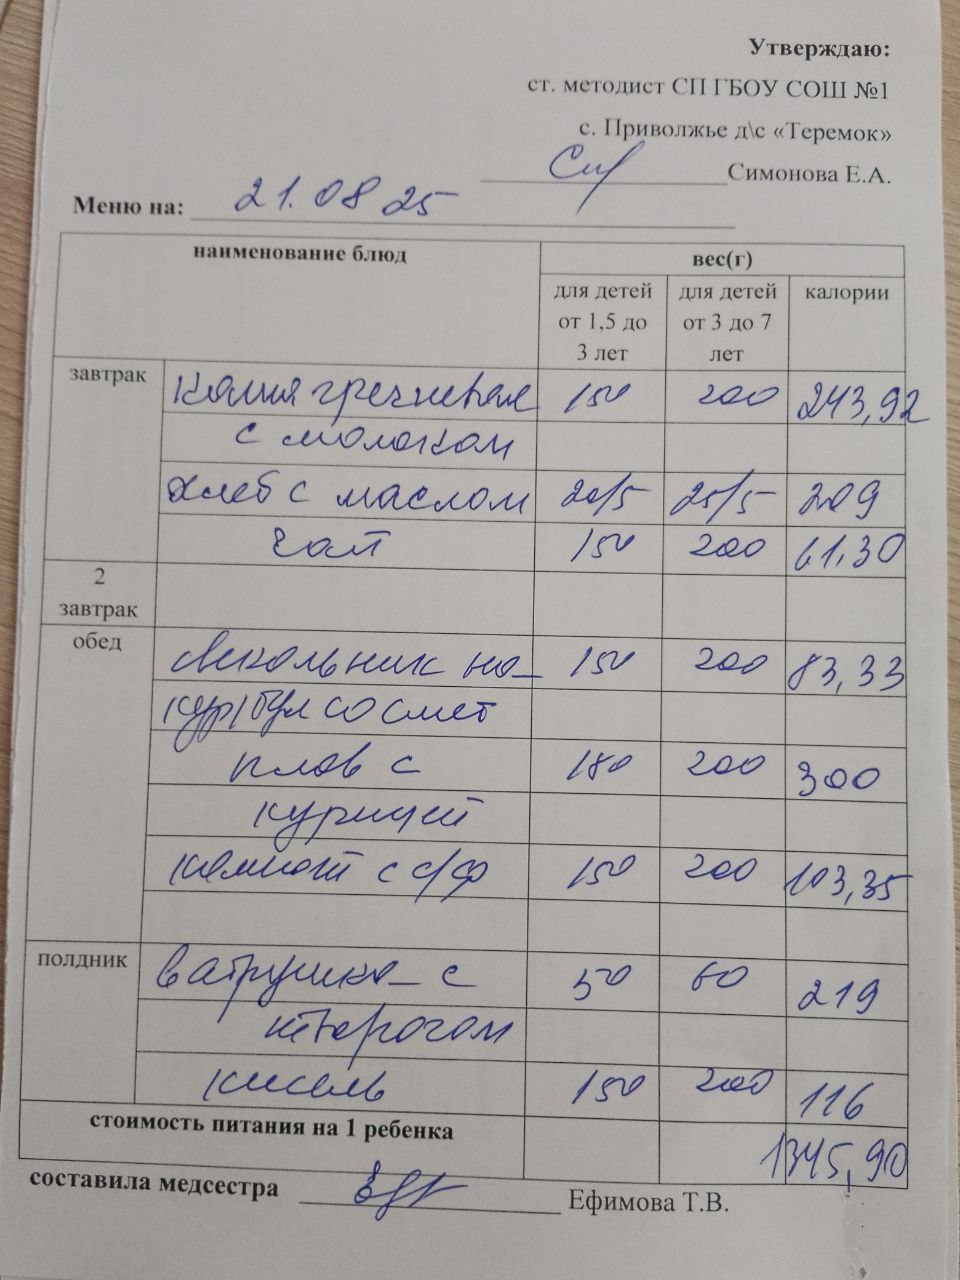 Утверждаю:
ст. методист СП ГБОУ СОШ №1
с. Приволжье д\с «Теремок»
Симонова Е.А.
Меню на: 21.08 25
наименование блюд вес(г)
для детей от 1,5 до 3 лет для детей от 3 до 7 лет калории
завтрак каша гречневая 150 200 243,92
с молоком
хлеб с маслом 20/5 25/5 209
чай 150 200 61,30
2 завтрак
обед свекольник на 150 200 83,33
кур/бул со смет
плов с 180 200 300
курицей
компот с с/ф 150 200 103,35
полдник ватрушка с 50 60 219
творогом
кисель 150 200 116
стоимость питания на 1 ребенка 1345,90
составила медсестра Ефимова Т.В.